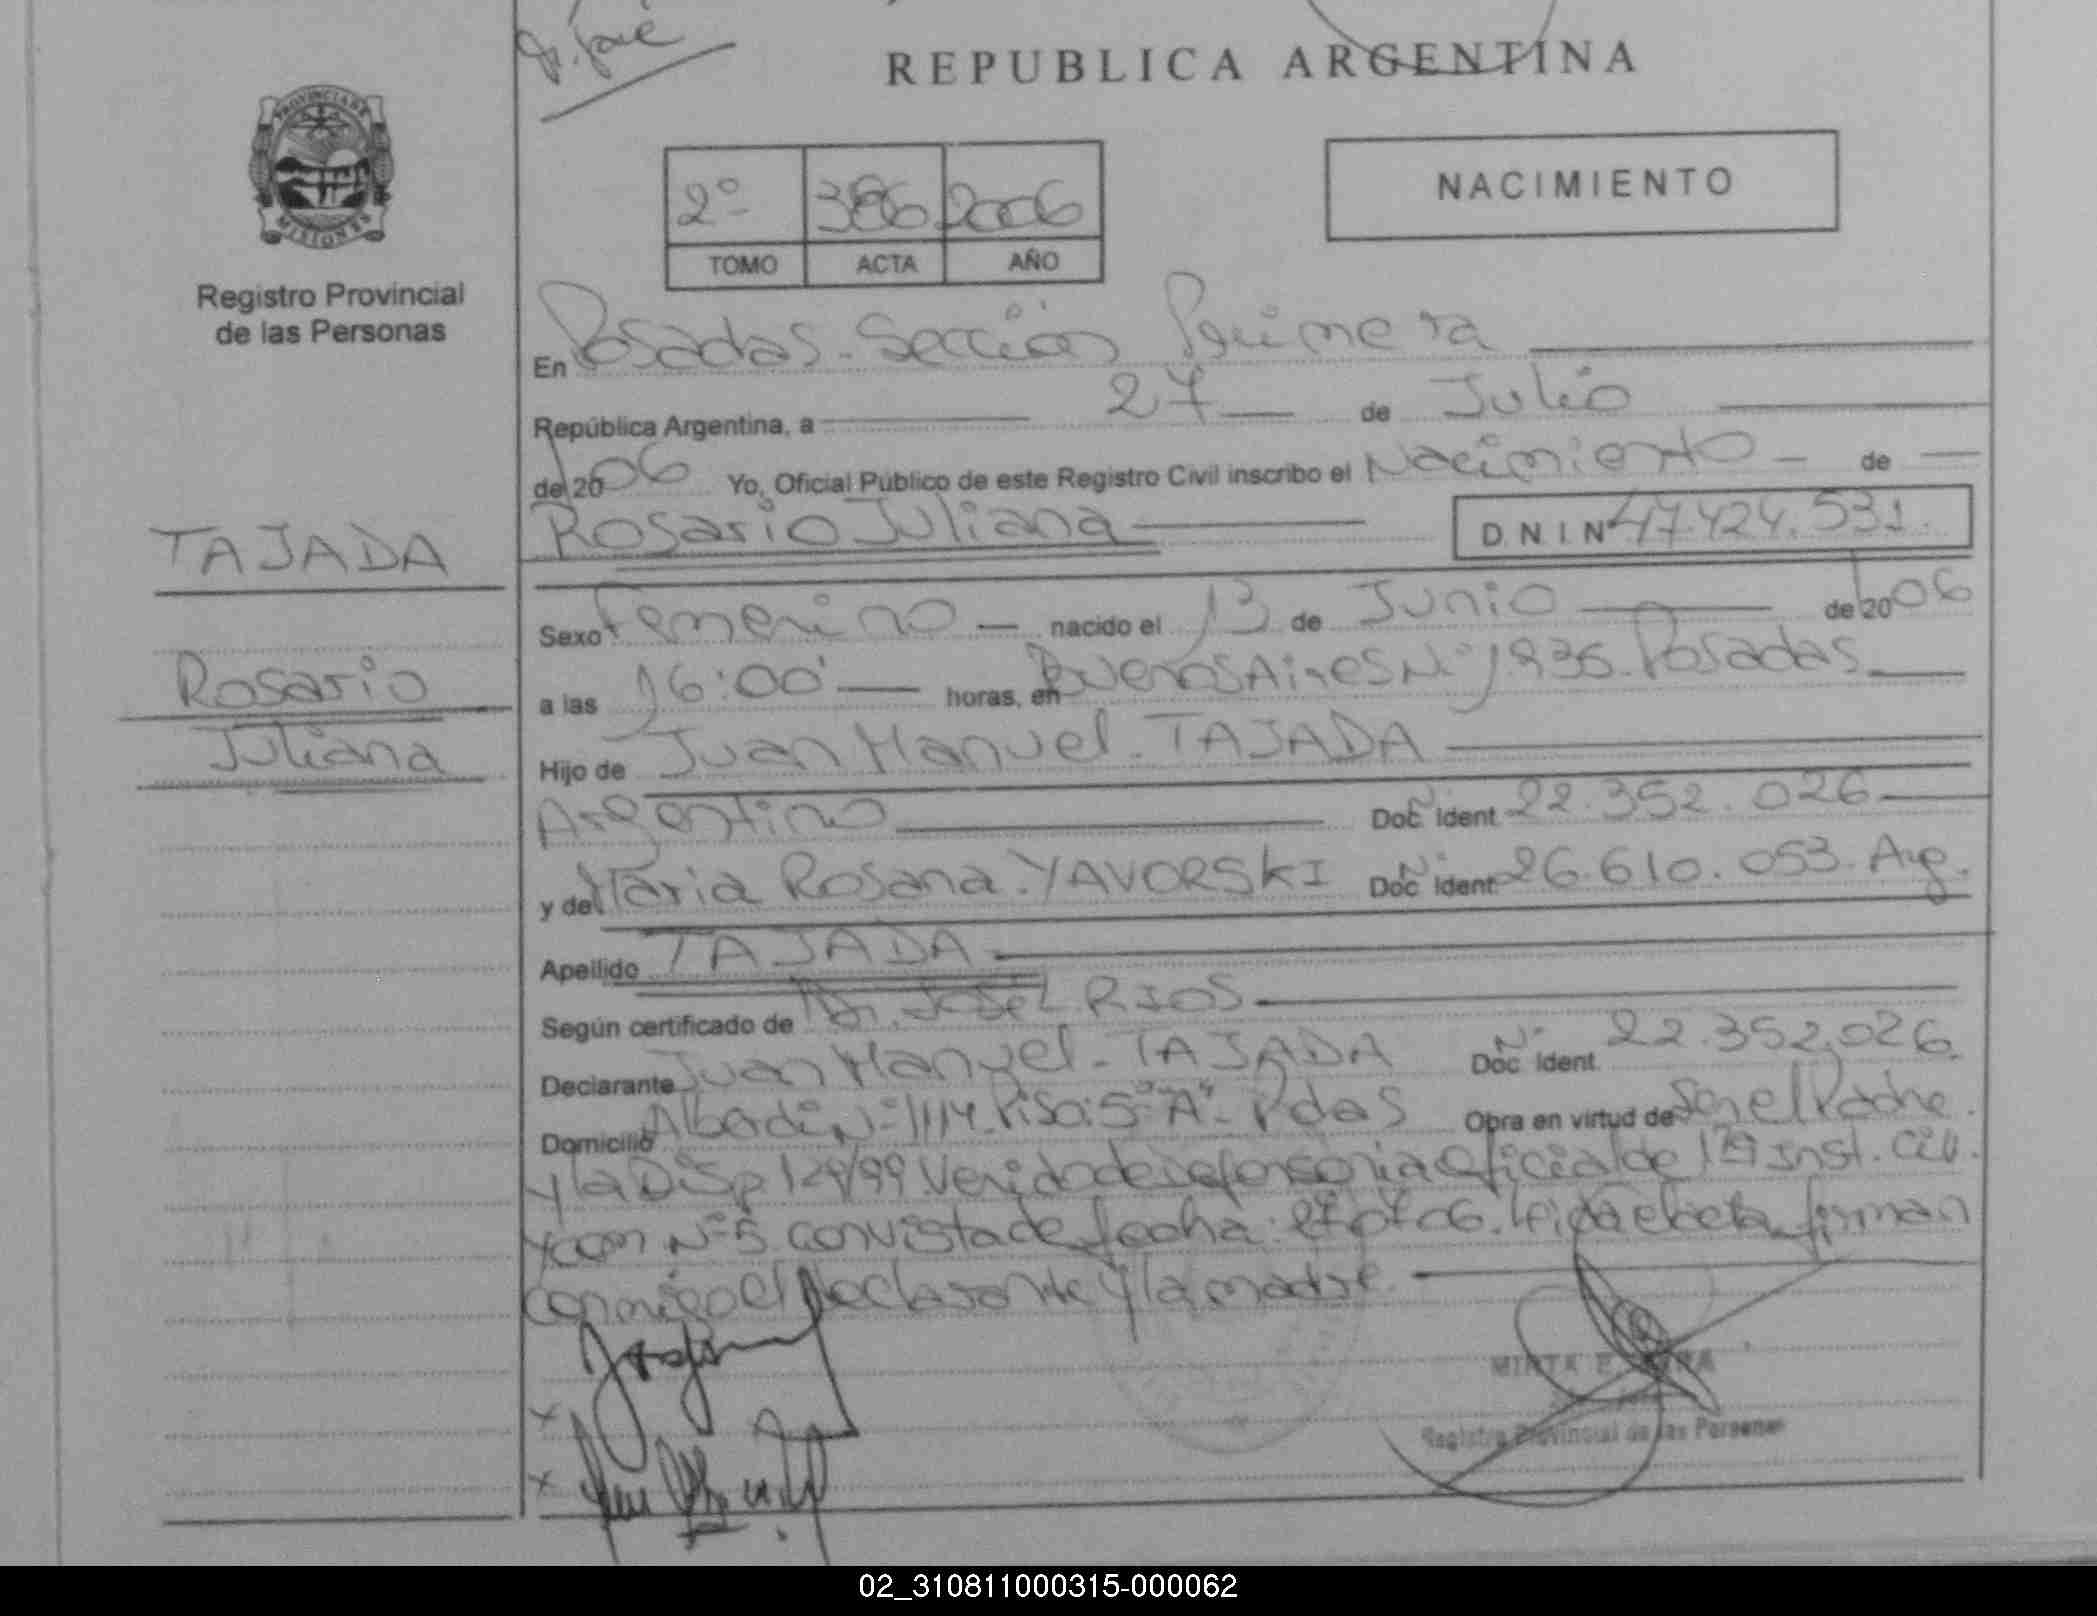 REPUBLICA ARGENTINA
PROVINCIA DE MISIONES
Registro Provincial
de las Personas
2º 386 2006
TOMO ACTA AÑO
NACIMIENTO
En Posadas-Sección Primera
República Argentina, a 27 de Julio
de 2006 Yo, Oficial Público de este Registro Civil inscribo el Nacimiento - de
Rosario Juliana D.N.I. Nº 47.424.531
TAJADA
Rosario
Juliana
Sexo Femenino nacido el 13 de Junio de 2006
a las 16:00 horas, en Buenos Aires Nº 1.935. Posadas
Hijo de Juan Manuel TAJADA
Argentino Doc Nº Ident 22.352.026
y de Maria Rosana YAVORSKI Doc Nº Ident 26.610.053 Arg.
Apellido TAJADA
Según certificado de Dr. José L RIOS
Declarante Juan Manuel - TAJADA Doc Nº Ident. 22.352.026
Domicilio Alberdi Nº 1114 Piso: 5º "A" - Pdas Obra en virtud de Ser el Padre
y la Disp 129/99. Venido de defensoria Oficial de 1ra Inst. Civ.
y com Nº 5. con vista de fecha: 27 07 06. Leida el acta firman
conmigo el declarante y la madre.
MIRTA E.
Registro Provincial de las Personas
02_310811000315-000062